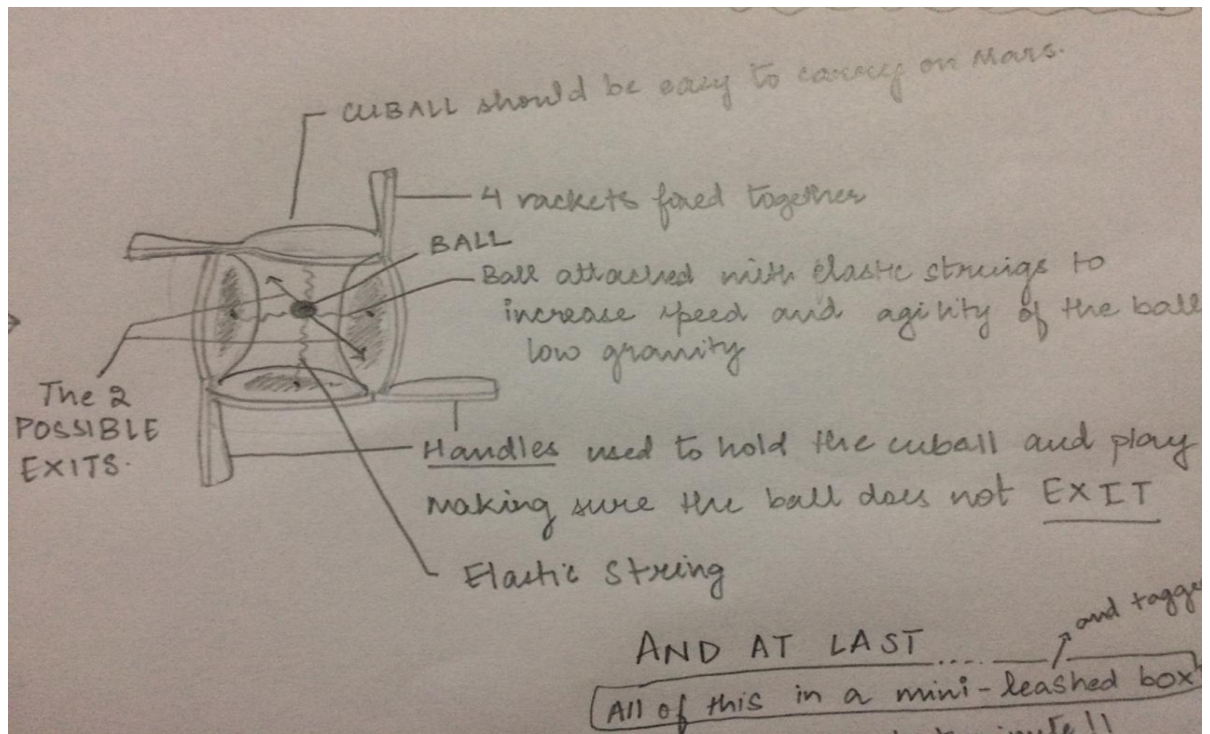 CUBALL should be easy to carry on Mars.
4 rackets fixed together
BALL
Ball attached with elastic strings to
increase speed and agility of the ball
low gravity
The 2
POSSIBLE
EXITS.
Handles used to hold the cuball and play
making sure the ball does not EXIT
Elastic String
and tagge
AND AT LAST ....
All of this in a mini-leashed box